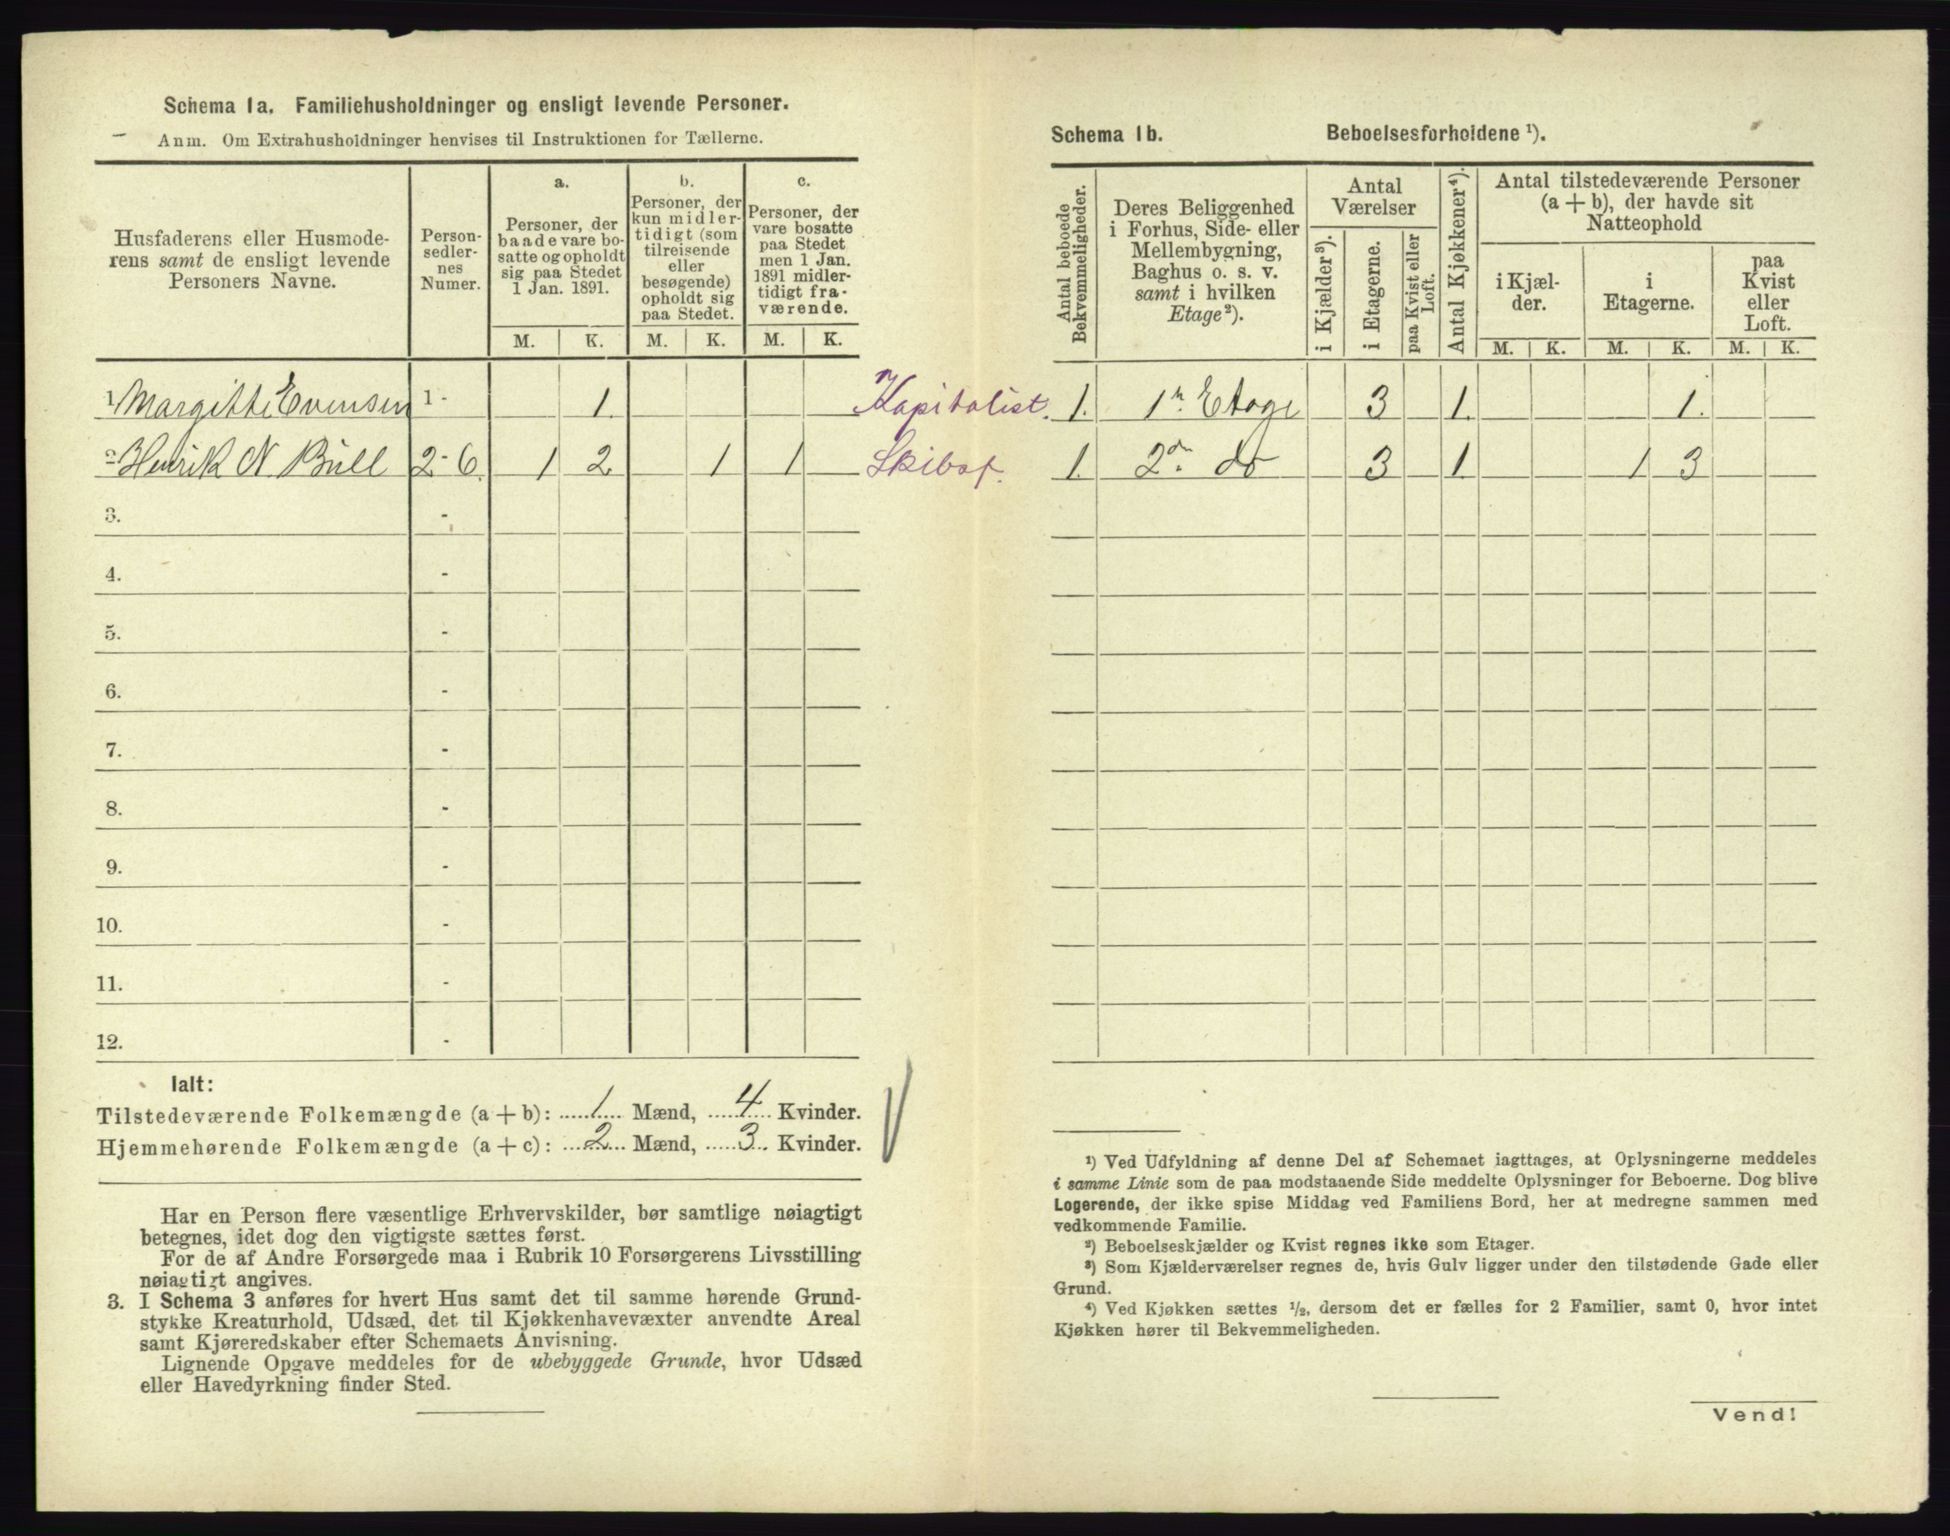 Schema 1a. Familiehusholdninger og ensligt levende Personer.
Anm. Om Extrahusholdninger henvises til Instruktionen for Tællerne.
Husfaderens eller Husmode-
rens samt de ensligt levende
Personers Navne.
Person-
sedler-
nes
Numer.
a.
Personer, der
baade vare bo-
satte og opholdt
sig paa Stedet
1 Jan. 1891.
b.
Personer, der
kun midler-
tidigt (som
tilreisende
eller
besøgende)
opholdt sig
paa Stedet.
c.
Personer, der
vare bosatte
paa Stedet
men 1 Jan.
1891 midler-
tidigt fra-
værende.
M. K. M. K. M. K.
1 Margitte Evensen 1 - 1. Kapitalist.
2 Henrik N. Bull 2-6. 1 2 1 1 Skibsf.
3. -
4. -
5. -
6. -
7. -
8. -
9. -
10. -
11. -
12. -
Ialt:
Tilstedeværende Folkemængde (a + b): 1 Mænd, 4 Kvinder.
Hjemmehørende Folkemængde (a + c): 2 Mænd, 3 Kvinder.
Har en Person flere væsentlige Erhvervskilder, bør samtlige nøiagtigt
betegnes, idet dog den vigtigste sættes først.
For de af Andre Forsørgede maa i Rubrik 10 Forsørgerens Livsstilling
nøiagtigt angives.
3. I Schema 3 anføres for hvert Hus samt det til samme hørende Grund-
stykke Kreaturhold, Udsæd, det til Kjøkkenhavevæxter anvendte Areal
samt Kjøreredskaber efter Schemaets Anvisning.
Lignende Opgave meddeles for de ubebyggede Grunde, hvor Udsæd
eller Havedyrkning finder Sted.
Schema 1b. Beboelsesforholdene ¹).
Antal beboede
Bekvemmeligheder.
Deres Beliggenhed
i Forhus, Side- eller
Mellembygning,
Baghus o. s. v.
samt i hvilken
Etage²).
Antal
Værelser
i Kjælder³).
i Etagerne.
paa Kvist eller
Loft.
Antal Kjøkkener⁴).
Antal tilstedeværende Personer
(a + b), der havde sit
Natteophold
i Kjæl-
der.
i
Etagerne.
paa
Kvist
eller
Loft.
M. K. M. K. M. K.
1. 1ste Etage 3 1. 1.
1. 2den do 3 1. 1 3
¹) Ved Udfyldning af denne Del af Schemaet iagttages, at Oplysningerne meddeles
i samme Linie som de paa modstaaende Side meddelte Oplysninger for Beboerne. Dog blive
Logerende, der ikke spise Middag ved Familiens Bord, her at medregne sammen med
vedkommende Familie.
²) Beboelseskjælder og Kvist regnes ikke som Etager.
³) Som Kjælderværelser regnes de, hvis Gulv ligger under den tilstødende Gade eller
Grund.
⁴) Ved Kjøkken sættes ½, dersom det er fælles for 2 Familier, samt 0, hvor intet
Kjøkken hører til Bekvemmeligheden.
Vend!